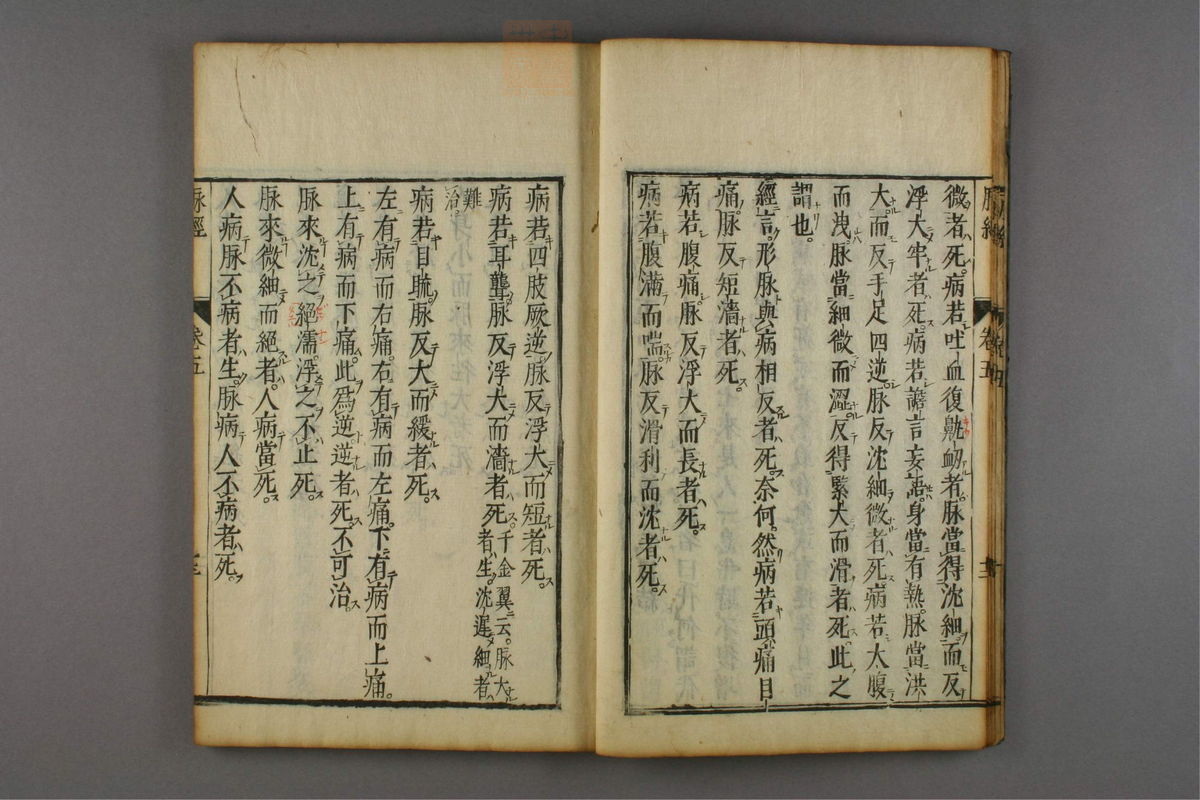 微者死。病若吐血復鼽衂者脉當得沈細而反
浮大牢者死。病若譫言妄語。身當有熱。脉當洪
大而反手足四逆。脉反沈細微者死。病若大腹
而洩。脉當細微而澀。反得緊大而滑者死。此之
謂也。
經言。形脉與病相反者死。奈何。然病若頭痛目
痛。脉反短濇者死。
病若腹痛。脉反浮大而長者死。
病若腹滿而喘。脉反滑利而沈者死。
脉經
卷五
病若四肢厥逆。脉反浮大而短者死。
病若耳聾。脉反浮大而濇者死。千金翼云。脉大者生。沈遲細者難治。
病若目䀮。脉反大而緩者死。
左有病而右痛。右有病而左痛。下有病而上痛。
上有病而下痛。此爲逆。逆者死。不可治。
脉來沈之絕濡。浮之不止死。
脉來微細而絕者。人病當死。
人病脉不病者生。脉病人不病者死。
脉經
卷五